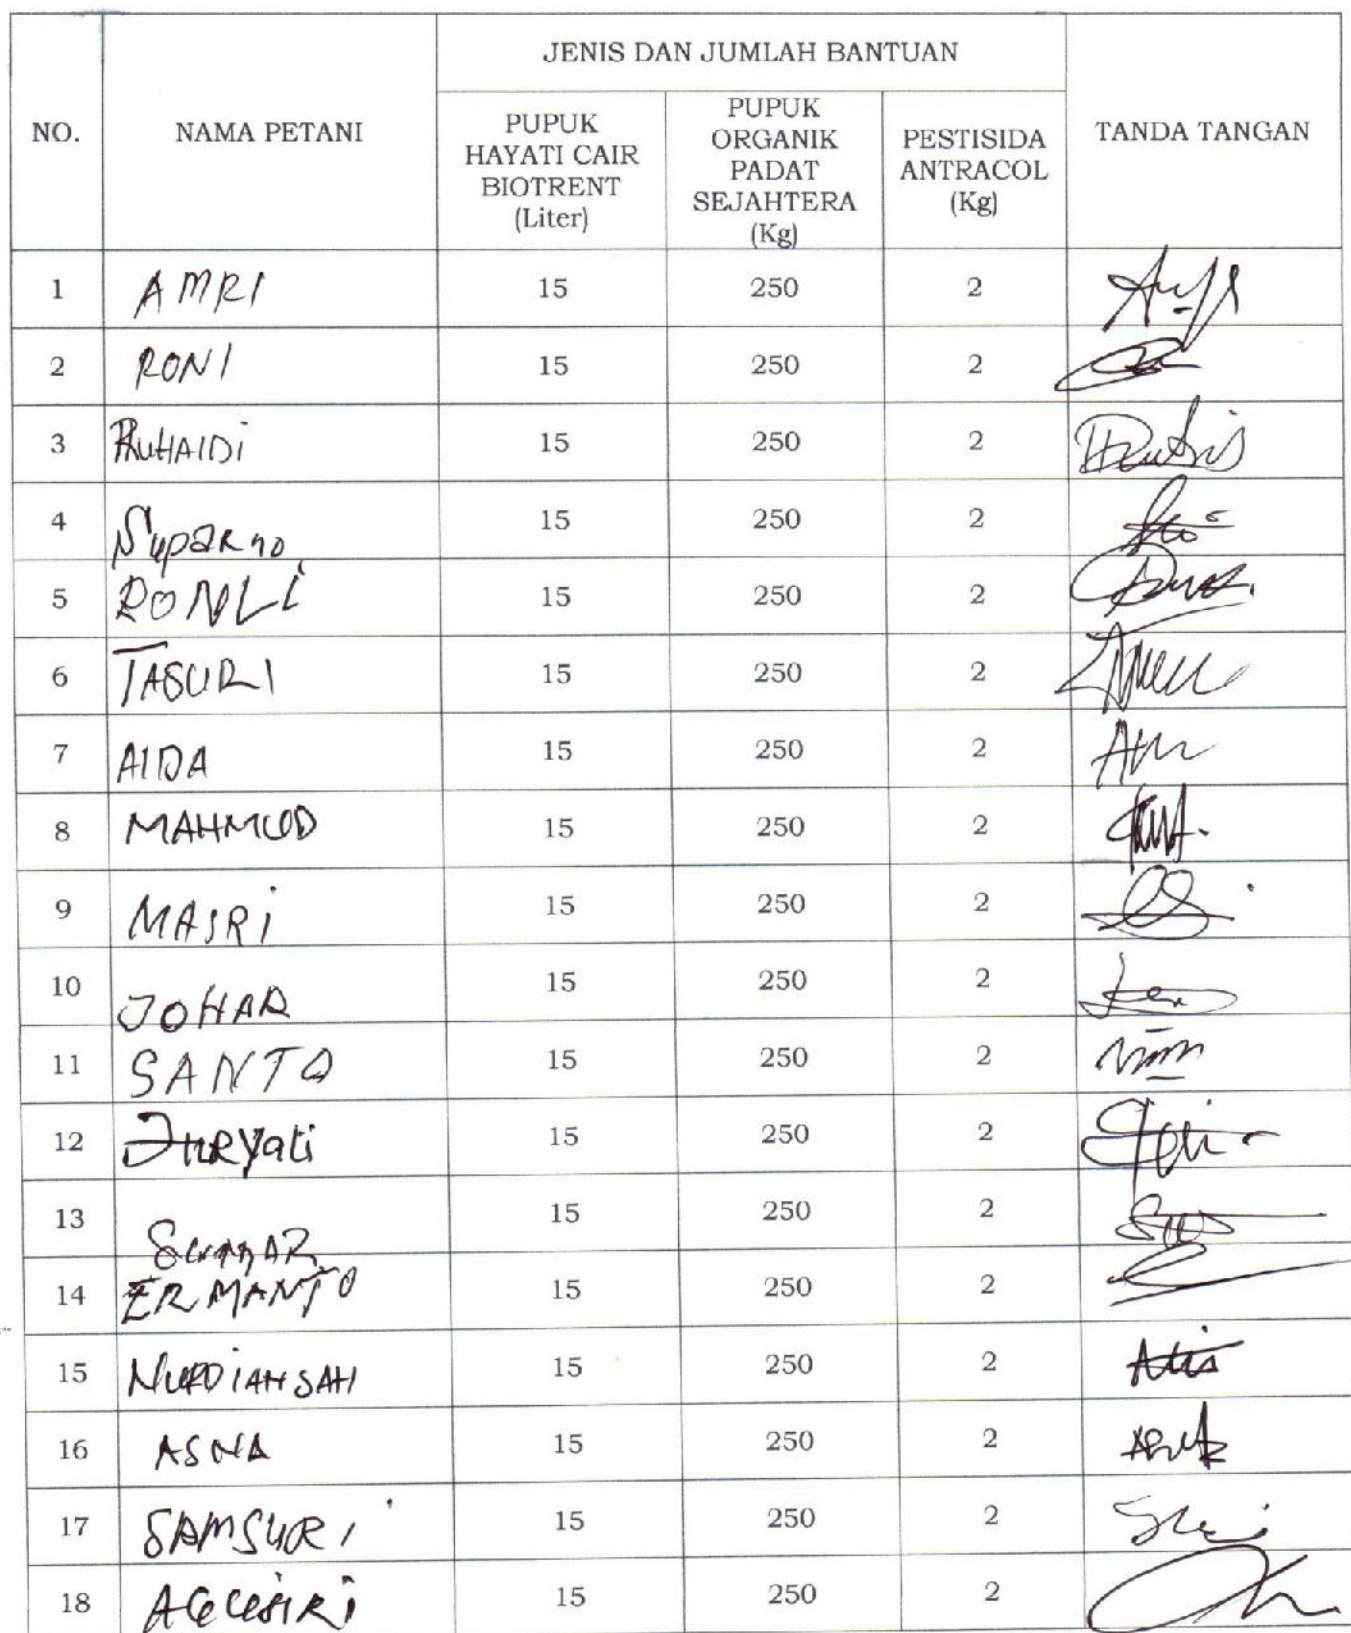 JENIS DAN JUMLAH BANTUAN
NO. NAMA PETANI PUPUK HAYATI CAIR BIOTRENT (Liter) PUPUK ORGANIK PADAT SEJAHTERA (Kg) PESTISIDA ANTRACOL (Kg) TANDA TANGAN
1 AMRI 15 250 2
2 RONI 15 250 2
3 RUHAIDI 15 250 2
4 Suparno 15 250 2
5 RONLI 15 250 2
6 TASURI 15 250 2
7 AIDA 15 250 2
8 MAHMUD 15 250 2
9 MASRI 15 250 2
10 JOHAR 15 250 2
11 SANTO 15 250 2
12 JURYati 15 250 2
13 15 250 2
14 ERMANTO 15 250 2
15 NURDIANSAH 15 250 2
16 ASNA 15 250 2
17 SAMSURI 15 250 2
18 15 250 2